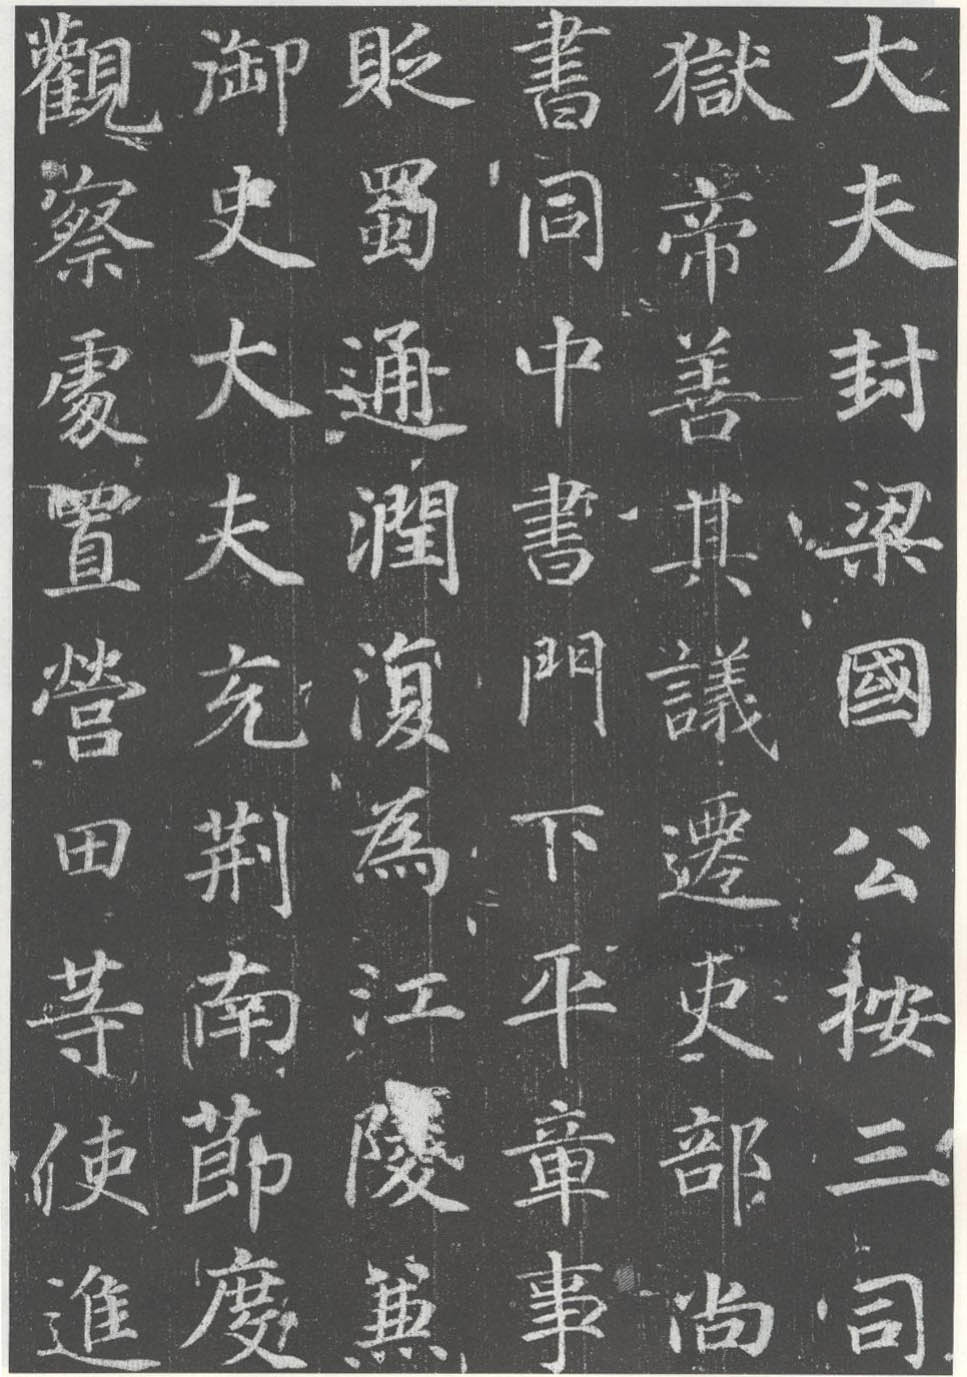 大夫封梁國公按三司
獄帝善其議遷吏部尚
書同中書門下平章事
貶蜀通潤澓為江陵兼
御史大夫充荆南節度
觀察處置營田等使進